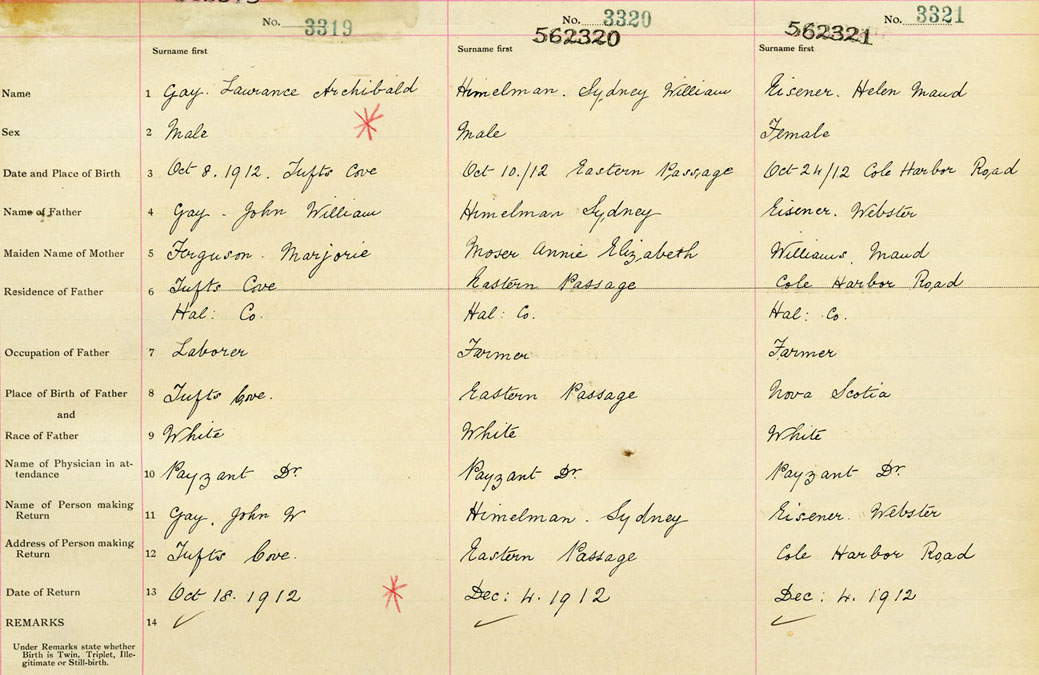 No. 3319 No. 3320 No. 3321
562320 562321
Surname first Surname first Surname first
Name 1 Gay. Laurance Archibald Himelman. Sydney William Eisener. Helen Maud
Sex 2 Male Male Female
Date and Place of Birth 3 Oct 8. 1912. Tufts Cove Oct 10/12 Eastern Passage Oct 24/12 Cole Harbor Road
Name of Father 4 Gay - John William Himelman Sydney Eisener. Webster
Maiden Name of Mother 5 Ferguson. Marjorie Moser Annie Elizabeth Williams. Maud
Residence of Father 6 Tufts Cove Eastern Passage Cole Harbor Road
Hal: Co. Hal: Co. Hal: Co.
Occupation of Father 7 Laborer Farmer Farmer
Place of Birth of Father 8 Tufts Cove. Eastern Passage Nova Scotia
and
Race of Father 9 White White White
Name of Physician in at-
tendance 10 Payzant Dr. Payzant Dr. Payzant Dr.
Name of Person making
Return 11 Gay, John W Himelman. Sydney Eisener. Webster
Address of Person making
Return 12 Tufts Cove. Eastern Passage Cole Harbor Road
Date of Return 13 Oct 18. 1912 Dec: 4. 1912 Dec: 4. 1912
REMARKS 14
Under Remarks state whether
Birth is Twin, Triplet, Ille-
gitimate or Still-birth.